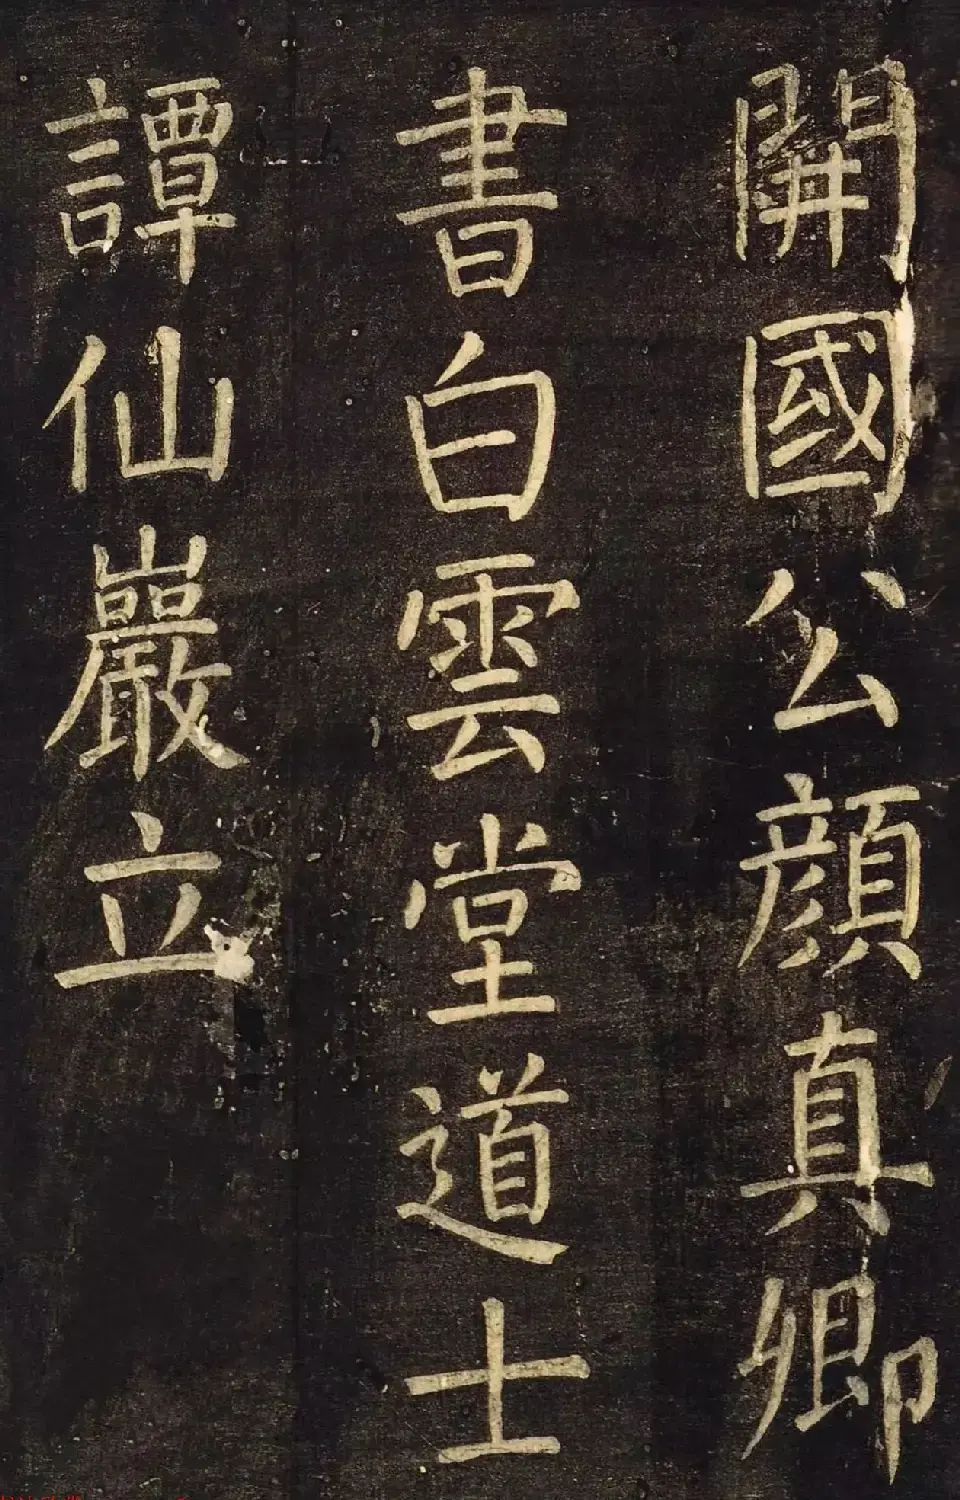 開國公顏真卿
書白雲堂道士
譚仙巖立